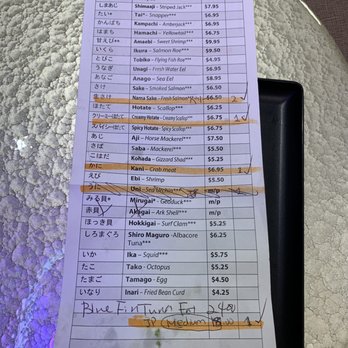 しまあじ Shimaaji - Striped Jack*** $7.95
たい* Tai* - Snapper*** $6.95
かんぱち Kampachi - Amberjack*** $6.95
はまち Hamachi - Yellowtail*** $6.75
甘えび** Amaebi - Sweet Shrimp*** $9.95
いくら Ikura - Salmon Roe*** $9.50
とびこ Tobiko - Flying Fish Roe*** $6.50
うなぎ Unagi - Fresh Water Eel $6.95
あなご Anago - Sea Eel $8.95
さけ Sake - Smoked Salmon*** $6.50
生さけ Nama Sake - Fresh Salmon*** $6.50 2
ほたて Hotate - Scallops*** $6.25
クリーミーほたて Creamy Hotate - Creamy Scallop*** $6.75 1
スパイシーほたて Spicy Hotate - Spicy Scallop*** $6.75
あじ Aji - Horse Mackerel*** $7.50
さば Saba - Mackerel*** $5.50
こはだ Kohada - Gizzard Shad*** $5.25
かに Kani - Crab meat $6.75 1
えび Ebi - Shrimp $5.50
うに Uni - Sea Urchin*** m/p
みる貝* Mirugai* - Geoduck*** m/p
赤貝 Akagai - Ark Shell*** m/p
ほっき貝 Hokkigai - Surf Clam*** $5.25
しろまぐろ Shiro Maguro - Albacore Tuna*** $6.25
いか Ika - Squid*** $5.75
たこ Tako - Octopus $5.25
たまご Tamago - Egg $4.50
いなり Inari - Fried Bean Curd $4.25
Blue Fin Tuna 24.00
JP (Medium 1